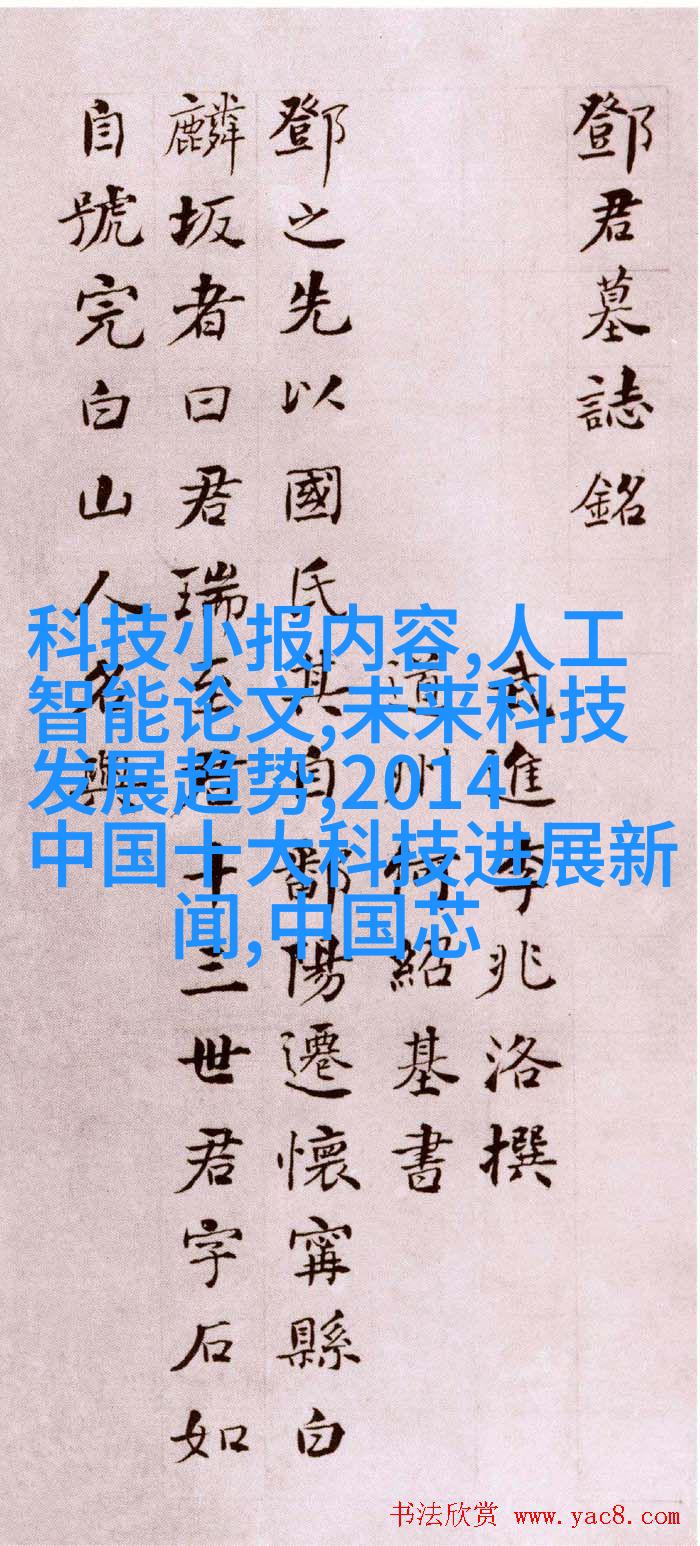 鄧君墓誌銘
武進李兆洛撰
道州何紹基書
鄧之先以國氏其自鄱陽遷懷寗縣白
麟坂者曰君瑞至君十三世君字石如
自號完白山人名與
科技小报内容,人工
智能论文,未来科技
发展趋势,2014
中国十大科技进展新
闻,中国芯
书法欣赏 www.yac8.com